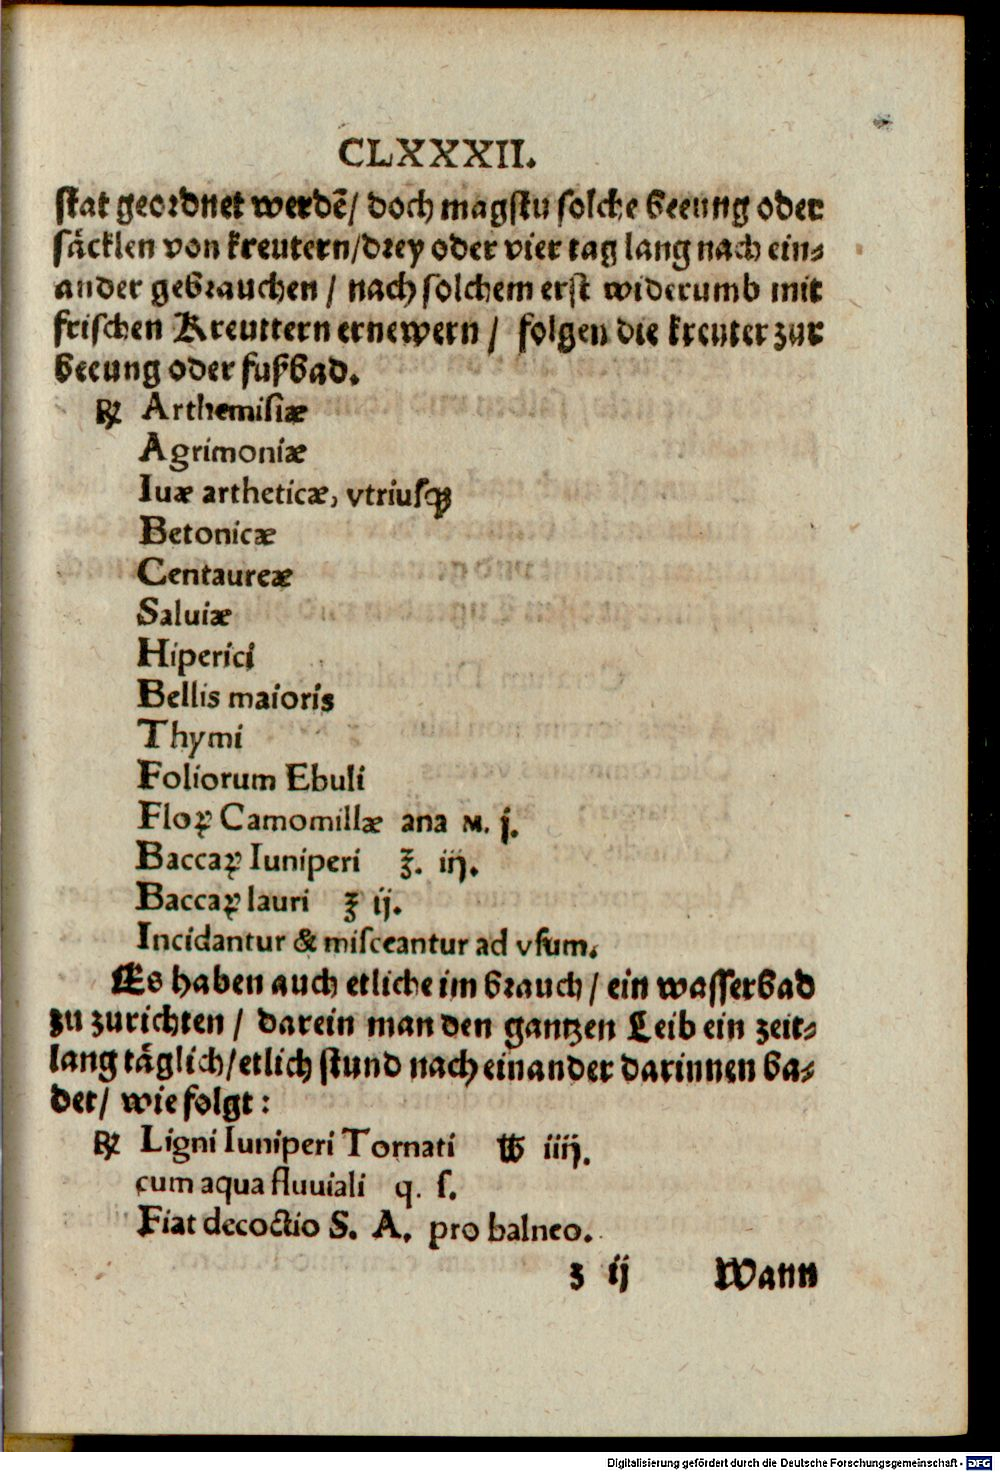 CLXXXII.
stat geordnet werdē/ doch magstu solche beeung oder
säcklen von kreutern/drey oder vier tag lang nach ein⸗
ander gebrauchen / nach solchem erst widerumb mit
frischen Kreuttern ernewern / folgen die kreuter zur
beeung oder fuſbad.
℞ Arthemisiæ
Agrimoniæ
Iuæ artheticæ, vtriusqꝫ
Betonicæ
Centaureæ
Saluiæ
Hiperici
Bellis maioris
Thymi
Foliorum Ebuli
Floꝝ Camomillæ ana M. j.
Baccaꝝ Iuniperi ℥. iij.
Baccaꝝ lauri ℥ ij.
Incidantur & misceantur ad vsum.
Es haben auch etliche im brauch / ein wasserbad
zu zurichten / darein man den gantzen Leib ein zeit⸗
lang täglich/etlich stund nach einander darinnen ba⸗
det/ wie folgt :
℞ Ligni Iuniperi Tornati ℔ iiij.
cum aqua fluuiali q. s.
Fiat decoctio S. A. pro balneo.
z ij Wann
Digitalisierung gefördert durch die Deutsche Forschungsgemeinschaft - DFG